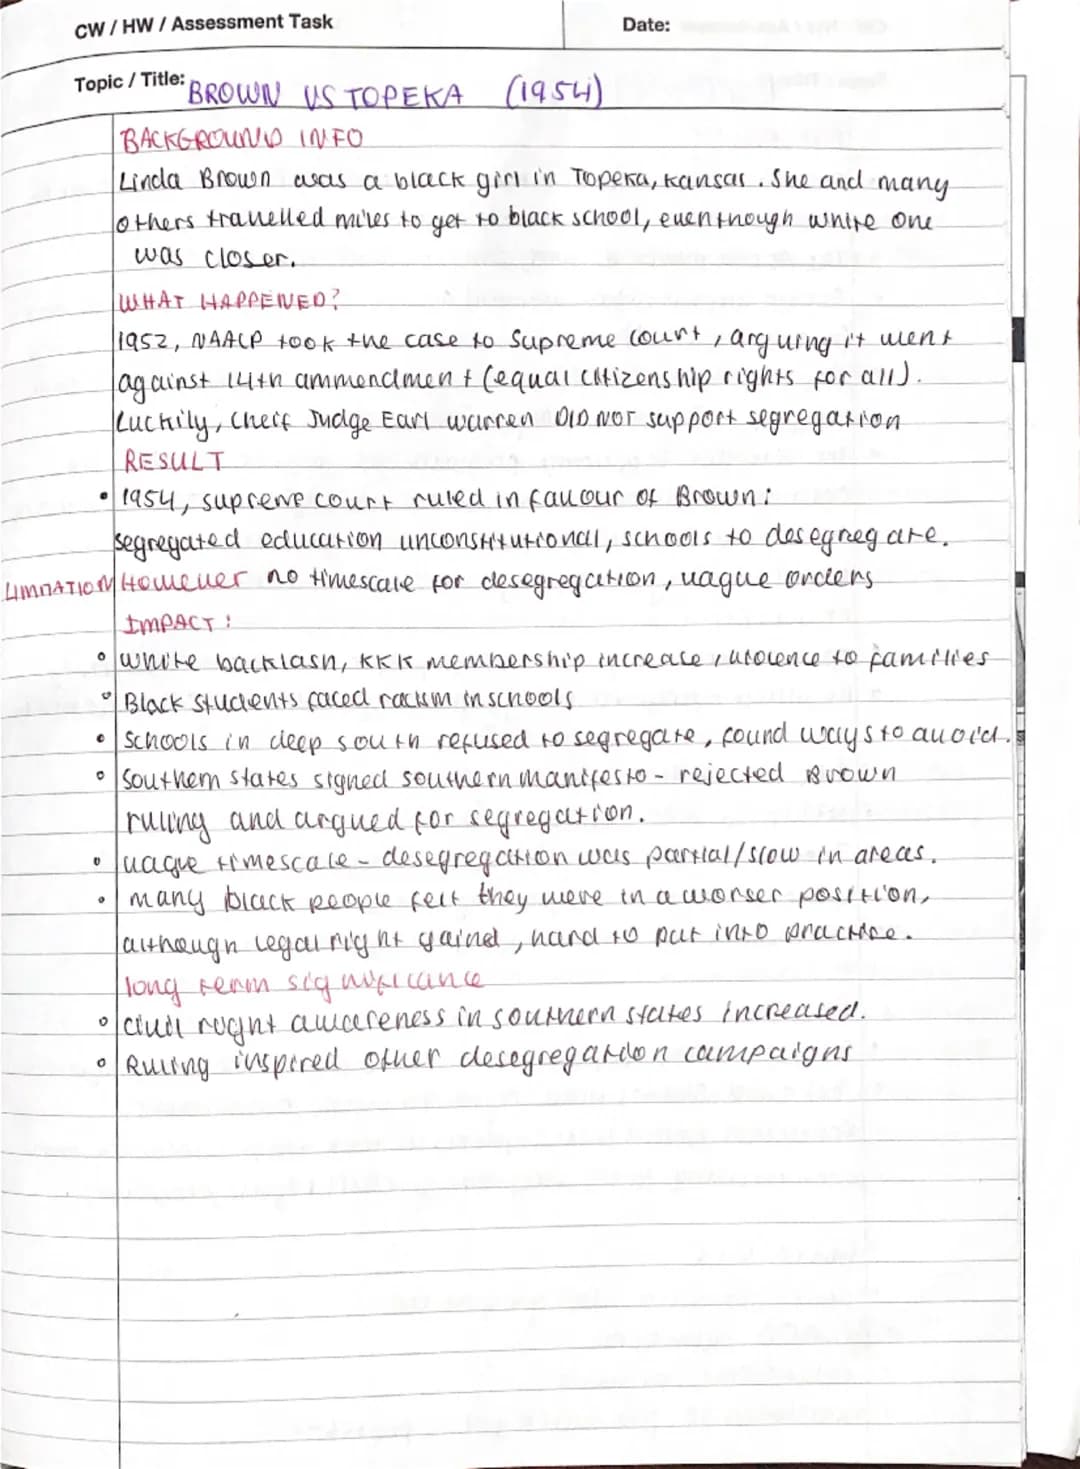 CW / HW / Assessment Task
Date:
Topic / Title: BROWN VS TOPEKA (1954)
BACKGROUND INFO
Linda Brown was a black girl in Topeka, Kansas. She and many
others travelled miles to get to black school, eventhough white one
was closer.
WHAT HAPPENED?
1952, NAACP took the case to Supreme court, arguing it went
against 14th ammendment (equal citizenship rights for all).
Luckily, Cheif Judge Earl warren DID NOT support segregation
RESULT
• 1954, supreme court ruled in favour of Brown:
segregated education unconstitutional, schools to desegregate.
LIMITATION However no timescale for desegregation, vague orders
IMPACT:
• White backlash, KKK membership increase, violence to families
• Black students faced racism in schools
• Schools in deep south refused to segregate, found ways to avoid.
• Southern states signed southern manifesto - rejected Brown
ruling and argued for segregation.
• vague timescale - desegregation was partial/slow in areas.
• many black people felt they were in a worser position,
although legal right gained, hard to put into practice.
long term significance
• civil right awareness in southern states increased.
• Ruling inspired other desegregation campaigns